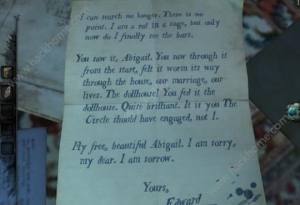 I can search no longer. There is no
point. I am a rat in a cage, but only
now do I finally see the bars.
You saw it, Abigail. You saw through it
from the start, felt it worm its way
through the house, our marriage, our
lives. The dollhouse! You fed it the
dollhouse. Quite brilliant. It is you The
Circle should have engaged, not I.
Fly free, beautiful Abigail. I am sorry,
my dear. I am sorrow.
Yours,
Edward